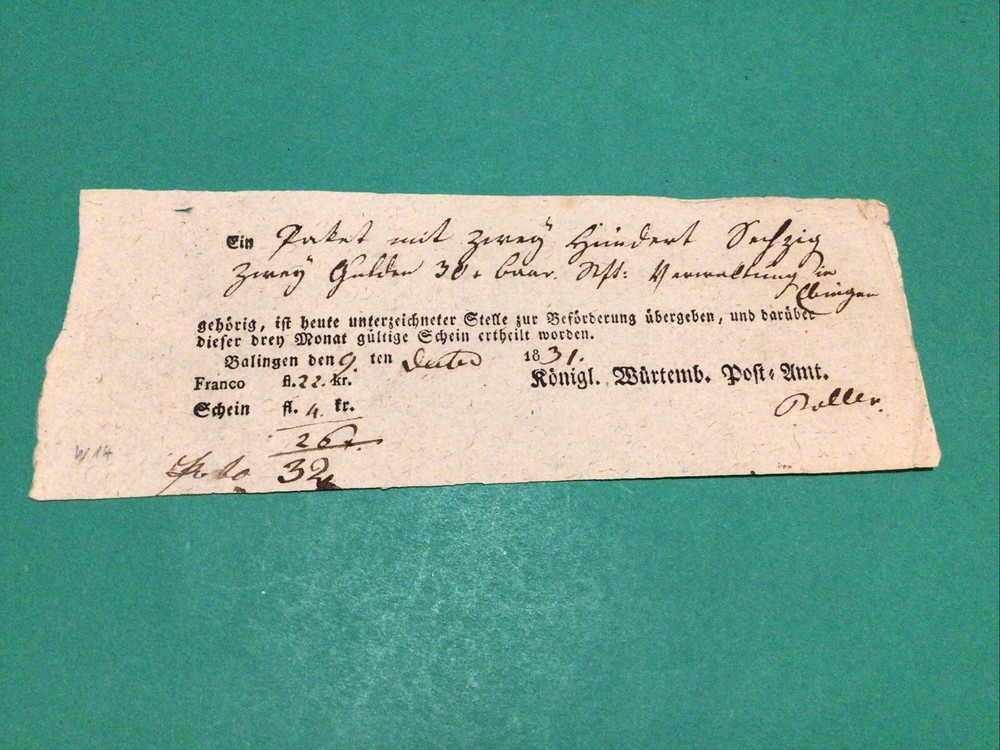 Ein Paket mit zwey Hundert Sechzig
zwey Gulden 30 x baar. Stft: Verwaltung in
Ebingen
gehörig, ist heute unterzeichneter Stelle zur Beförderung übergeben, und darüber
dieser drey Monat gültige Schein ertheilt worden.
Balingen den 9 ten 1831.
Franco fl. 22. kr.
Königl. Würtemb. Post-Amt.
Schein fl. 4. kr.
Roller.
26 x.
32
W 14